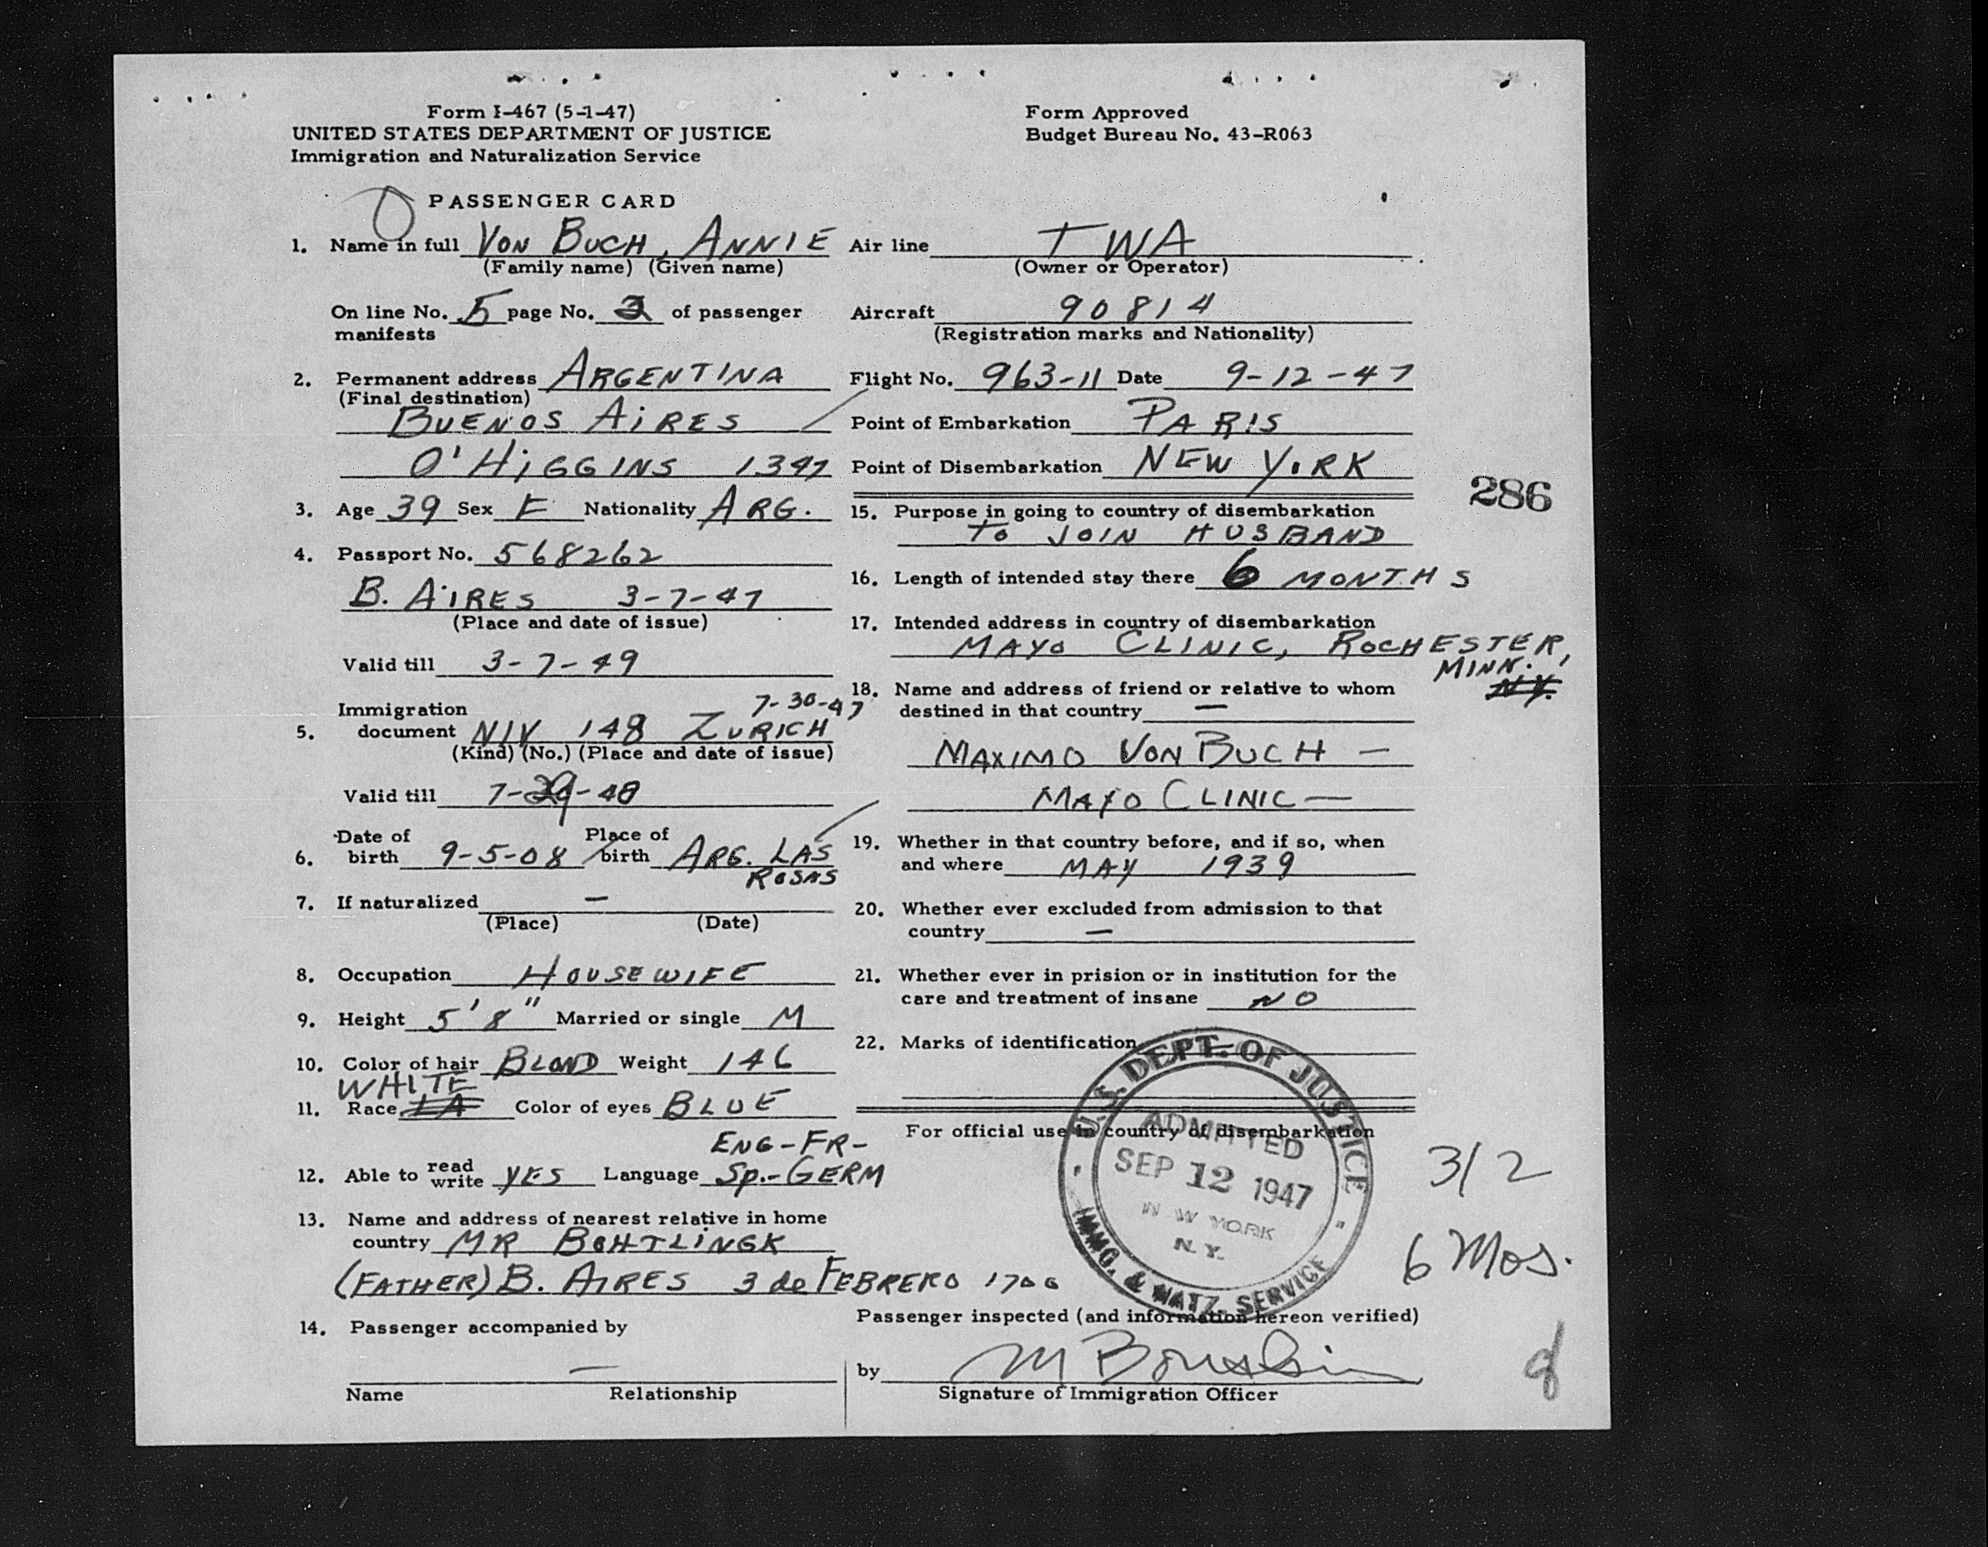 Form I-467 (5-1-47)
UNITED STATES DEPARTMENT OF JUSTICE
Immigration and Naturalization Service
Form Approved
Budget Bureau No. 43-R063
PASSENGER CARD
1. Name in full VON BUCH, ANNIE
(Family name) (Given name)
On line No. 5 page No. 2 of passenger
manifests
2. Permanent address ARGENTINA
(Final destination)
BUENOS AIRES
O'HIGGINS 1347
3. Age 39 Sex F Nationality ARG.
4. Passport No. 568262
B. AIRES 3-7-47
(Place and date of issue)
Valid till 3-7-49
Immigration 7-30-47
5. document NIV 148 ZURICH
(Kind) (No.) (Place and date of issue)
Valid till 7-29-48
Date of Place of
6. birth 9-5-08 birth ARG. LAS
ROSAS
7. If naturalized —
(Place) (Date)
8. Occupation HOUSEWIFE
9. Height 5'8" Married or single M
10. Color of hair BLOND Weight 146
WHITE
11. Race Color of eyes BLUE
ENG-FR-
12. Able to read write YES Language SP.-GERM
13. Name and address of nearest relative in home
country MR BOHTLINGK
(FATHER) B. AIRES 3 de FEBRERO 1706
14. Passenger accompanied by
—
Name Relationship
Air line TWA
(Owner or Operator)
Aircraft 90814
(Registration marks and Nationality)
Flight No. 963-11 Date 9-12-47
Point of Embarkation PARIS
Point of Disembarkation NEW YORK
286
15. Purpose in going to country of disembarkation
TO JOIN HUSBAND
16. Length of intended stay there 6 MONTHS
17. Intended address in country of disembarkation
MAYO CLINIC, ROCHESTER,
MINN.
N.Y.
18. Name and address of friend or relative to whom
destined in that country —
MAXIMO VON BUCH —
MAYO CLINIC —
19. Whether in that country before, and if so, when
and where MAY 1939
20. Whether ever excluded from admission to that
country —
21. Whether ever in prision or in institution for the
care and treatment of insane NO
22. Marks of identification —
For official use in country of disembarkation
U.S. DEPT. OF JUSTICE
ADMITTED
SEP 12 1947
N W YORK
N.Y.
IMMG. & NATZ. SERVICE
3/2
6 Mos.
Passenger inspected (and information hereon verified)
by
Signature of Immigration Officer